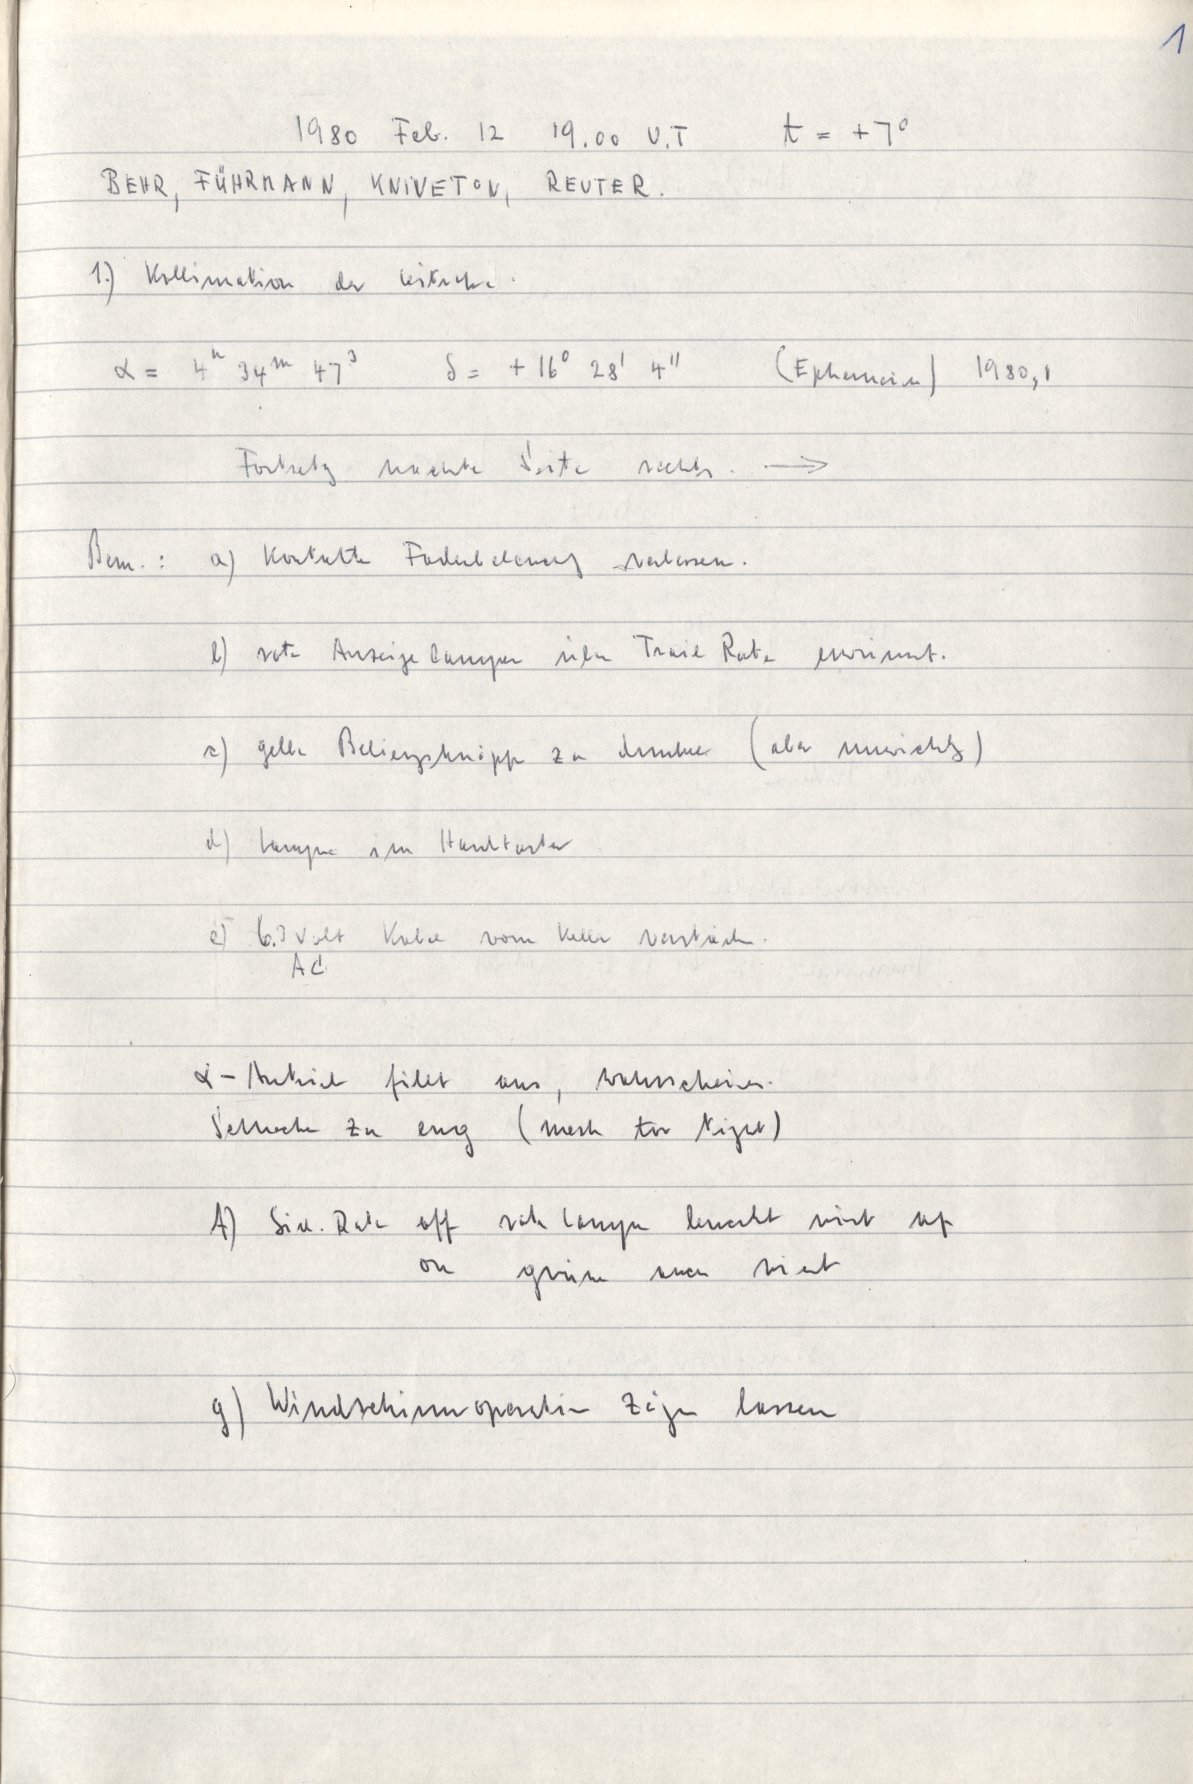 1
1980 Feb. 12 19.00 U.T t = +7°
BEHR, FÜHRMANN, KNIVETON, REUTER.
1.) Kollimation der
α = 4h 34m 47s δ = +16° 28' 4" (Ephemeriden) 1980,1
Fortsetzg nächste Seite rechts. →
Bem.: a) Kontakte verbessern.
b) rote Anzeigelampen über Trail Rate erwünscht.
c) gelbe Bedienungsknöpfe zu dunkel (aber unwichtig)
d) Lampe im Handtaster
e) 6.3 Volt Kabel vom Keller
AC
α-Antrieb fällt aus, wahrschein.
Schnecke zu eng (mesh too tight)
f) Sid. Rate off rote Lampe leuchtet nicht auf
on grüne auch nicht
g) Windschirmoperation zeigen lassen